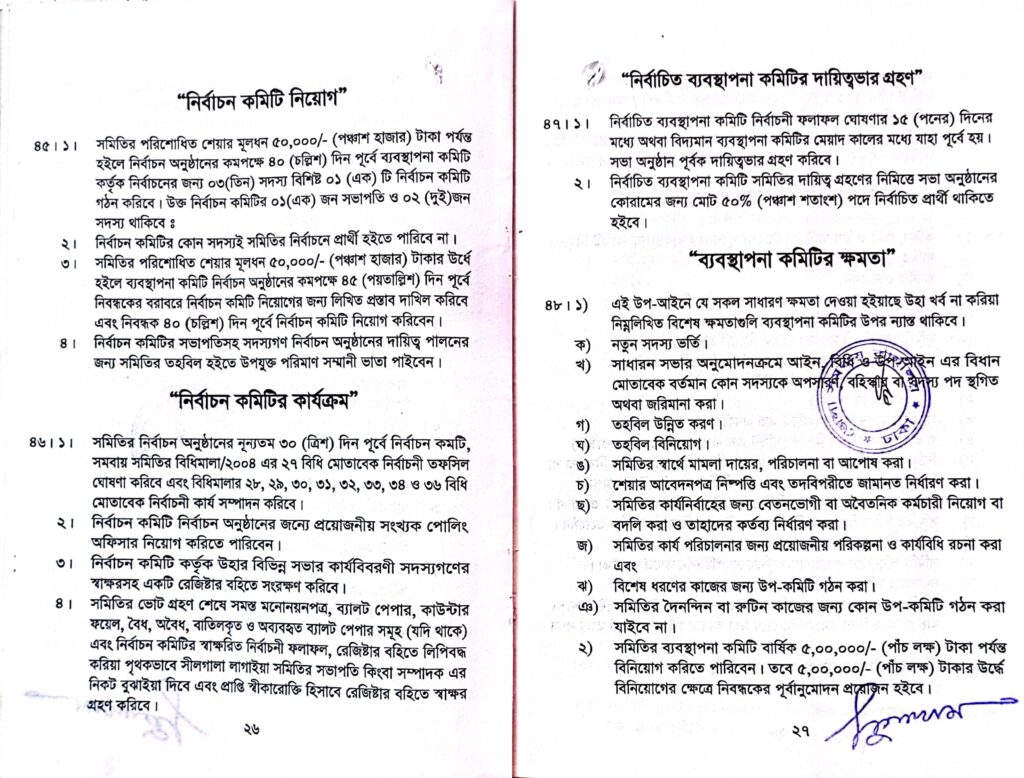 “নির্বাচন কমিটি নিয়োগ”
৪৫।১। সমিতির পরিশোধিত শেয়ার মূলধন ৫০,০০০/- (পঞ্চাশ হাজার) টাকা পর্যন্ত
হইলে নির্বাচন অনুষ্ঠানের কমপক্ষে ৪০ (চল্লিশ) দিন পূর্বে ব্যবস্থাপনা কমিটি
কর্তৃক নির্বাচনের জন্য ০৩(তিন) সদস্য বিশিষ্ট ০১ (এক) টি নির্বাচন কমিটি
গঠন করিবে। উক্ত নির্বাচন কমিটির ০১(এক) জন সভাপতি ও ০২ (দুই)জন
সদস্য থাকিবে ঃ
২। নির্বাচন কমিটির কোন সদস্যই সমিতির নির্বাচনে প্রার্থী হইতে পারিবে না।
৩। সমিতির পরিশোধিত শেয়ার মূলধন ৫০,০০০/- (পঞ্চাশ হাজার) টাকার উর্ধে
হইলে ব্যবস্থাপনা কমিটি নির্বাচন অনুষ্ঠানের কমপক্ষে ৪৫ (পয়তাল্লিশ) দিন পূর্বে
নিবন্ধকের বরাবরে নির্বাচন কমিটি নিয়োগের জন্য লিখিত প্রস্তাব দাখিল করিবে
এবং নিবন্ধক ৪০ (চল্লিশ) দিন পূর্বে নির্বাচন কমিটি নিয়োগ করিবেন।
৪। নির্বাচন কমিটির সভাপতিসহ সদস্যগণ নির্বাচন অনুষ্ঠানের দায়িত্ব পালনের
জন্য সমিতির তহবিল হইতে উপযুক্ত পরিমাণ সম্মানী ভাতা পাইবেন।
“নির্বাচন কমিটির কার্যক্রম”
৪৬।১। সমিতির নির্বাচন অনুষ্ঠানের নূন্যতম ৩০ (ত্রিশ) দিন পূর্বে নির্বাচন কমটি,
সমবায় সমিতির বিধিমালা/২০০৪ এর ২৭ বিধি মোতাবেক নির্বাচনী তফসিল
ঘোষণা করিবে এবং বিধিমালার ২৮, ২৯, ৩০, ৩১, ৩২, ৩৩, ৩৪ ও ৩৬ বিধি
মোতাবেক নির্বাচনী কার্য সম্পাদন করিবে।
২। নির্বাচন কমিটি নির্বাচন অনুষ্ঠানের জন্যে প্রয়োজনীয় সংখ্যক পোলিং
অফিসার নিয়োগ করিতে পারিবেন।
৩। নির্বাচন কমিটি কর্তৃক উহার বিভিন্ন সভার কার্যবিবরণী সদস্যগণের
স্বাক্ষরসহ একটি রেজিষ্টার বহিতে সংরক্ষণ করিবে।
৪। সমিতির ভোট গ্রহণ শেষে সমস্ত মনোনয়নপত্র, ব্যালট পেপার, কাউন্টার
ফয়েল, বৈধ, অবৈধ, বাতিলকৃত ও অব্যবহৃত ব্যালট পেপার সমূহ (যদি থাকে)
এবং নির্বাচন কমিটির স্বাক্ষরিত নির্বাচনী ফলাফল, রেজিষ্টার বহিতে লিপিবদ্ধ
করিয়া পৃথকভাবে সীলগালা লাগাইয়া সমিতির সভাপতি কিংবা সম্পাদক এর
নিকট বুঝাইয়া দিবে এবং প্রাপ্তি স্বীকারোক্তি হিসাবে রেজিষ্টার বহিতে স্বাক্ষর
গ্রহণ করিবে।
২৬
“নির্বাচিত ব্যবস্থাপনা কমিটির দায়িত্বভার গ্রহণ”
৪৭।১। নির্বাচিত ব্যবস্থাপনা কমিটি নির্বাচনী ফলাফল ঘোষণার ১৫ (পনের) দিনের
মধ্যে অথবা বিদ্যমান ব্যবস্থাপনা কমিটির মেয়াদ কালের মধ্যে যাহা পূর্বে হয়।
সভা অনুষ্ঠান পূর্বক দায়িত্বভার গ্রহণ করিবে।
২। নির্বাচিত ব্যবস্থাপনা কমিটি সমিতির দায়িত্ব গ্রহণের নিমিত্তে সভা অনুষ্ঠানের
কোরামের জন্য মোট ৫০% (পঞ্চাশ শতাংশ) পদে নির্বাচিত প্রার্থী থাকিতে
হইবে।
“ব্যবস্থাপনা কমিটির ক্ষমতা”
৪৮।১) এই উপ-আইনে যে সকল সাধারণ ক্ষমতা দেওয়া হইয়াছে উহা খর্ব না করিয়া
নিম্নলিখিত বিশেষ ক্ষমতাগুলি ব্যবস্থাপনা কমিটির উপর ন্যাস্ত থাকিবে।
ক) নতুন সদস্য ভর্তি।
খ) সাধারন সভার অনুমোদনক্রমে আইন, বিধি ও উপ-আইন এর বিধান
মোতাবেক বর্তমান কোন সদস্যকে অপসারণ, বহিস্কার বা সদস্য পদ স্থগিত
অথবা জরিমানা করা।
গ) তহবিল উন্নিত করণ।
ঘ) তহবিল বিনিয়োগ।
ঙ) সমিতির স্বার্থে মামলা দায়ের, পরিচালনা বা আপোষ করা।
চ) শেয়ার আবেদনপত্র নিষ্পত্তি এবং তদবিপরীতে জামানত নির্ধারণ করা।
ছ) সমিতির কার্যনির্বাহের জন্য বেতনভোগী বা অবৈতনিক কর্মচারী নিয়োগ বা
বদলি করা ও তাহাদের কর্তব্য নির্ধারণ করা।
জ) সমিতির কার্য পরিচালনার জন্য প্রয়োজনীয় পরিকল্পনা ও কার্যবিধি রচনা করা
এবং
ঝ) বিশেষ ধরণের কাজের জন্য উপ-কমিটি গঠন করা।
ঞ) সমিতির দৈনন্দিন বা রুটিন কাজের জন্য কোন উপ-কমিটি গঠন করা
যাইবে না।
২) সমিতির ব্যবস্থাপনা কমিটি বার্ষিক ৫,০০,০০০/- (পাঁচ লক্ষ) টাকা পর্যন্ত
বিনিয়োগ করিতে পারিবেন। তবে ৫,০০,০০০/- (পাঁচ লক্ষ) টাকার উর্দ্ধে
বিনিয়োগের ক্ষেত্রে নিবন্ধকের পূর্বানুমোদন প্রয়োজন হইবে।
২৭
ঢাকা